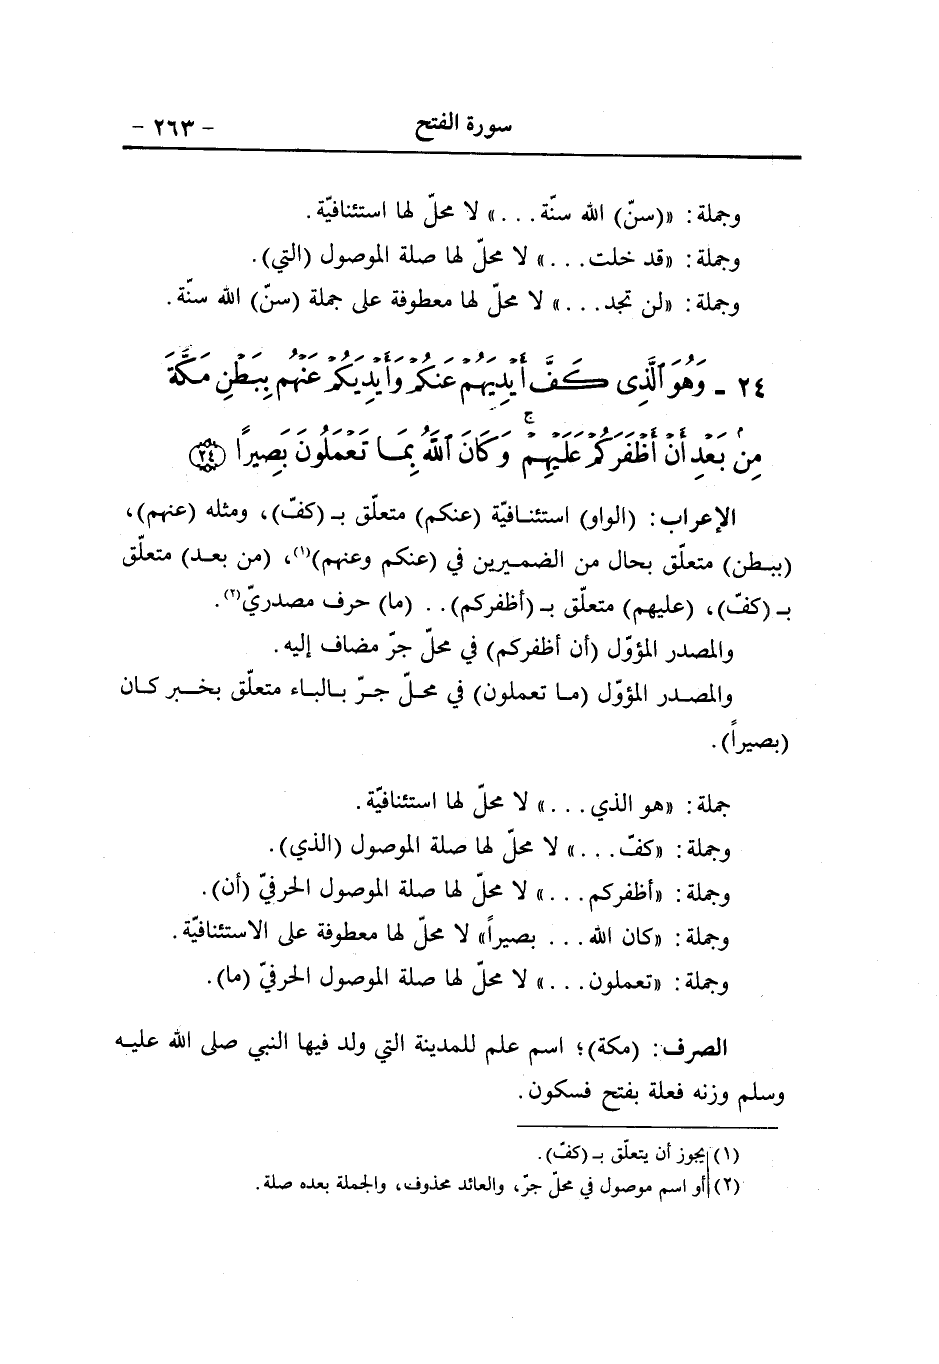 سورة الفتح - ٢٦٣ -
وجملة: «(سنّ) الله سنّة. . .» لا محلّ لها استئنافيّة.
وجملة: «قد خلت. . .» لا محلّ لها صلة الموصول (التي).
وجملة: «لن تجد. . .» لا محلّ لها معطوفة على جملة (سنّ) الله سنّة.
٢٤ - وَهُوَ ٱلَّذِى كَفَّ أَيْدِيَهُمْ عَنكُمْ وَأَيْدِيَكُمْ عَنْهُم بِبَطْنِ مَكَّةَ
مِنۢ بَعْدِ أَنْ أَظْفَرَكُمْ عَلَيْهِمْ ۚ وَكَانَ ٱللَّهُ بِمَا تَعْمَلُونَ بَصِيرًا ﴿٢٤﴾
الإعراب: (الواو) استئنافيّة (عنكم) متعلّق بـ (كفّ)، ومثله (عنهم)،
(ببطن) متعلّق بحال من الضميرين في (عنكم وعنهم)(١)، (من بعد) متعلّق
بـ (كفّ)، (عليهم) متعلّق بـ (أظفركم). . (ما) حرف مصدريّ(٢).
والمصدر المؤوّل (أن أظفركم) في محلّ جرّ مضاف إليه.
والمصدر المؤوّل (ما تعملون) في محلّ جرّ بالباء متعلّق بخبر كان
(بصيراً).
جملة: «هو الذي. . .» لا محلّ لها استئنافيّة.
وجملة: «كفّ. . .» لا محلّ لها صلة الموصول (الذي).
وجملة: «أظفركم. . .» لا محلّ لها صلة الموصول الحرفيّ (أن).
وجملة: «كان الله. . . بصيراً» لا محلّ لها معطوفة على الاستئنافيّة.
وجملة: «تعملون. . .» لا محلّ لها صلة الموصول الحرفيّ (ما).
الصرف: (مكة)؛ اسم علم للمدينة التي ولد فيها النبي صلى الله عليه
وسلم وزنه فعلة بفتح فسكون.
(١) يجوز أن يتعلّق بـ (كفّ).
(٢) أو اسم موصول في محلّ جرّ، والعائد محذوف، والجملة بعده صلة.